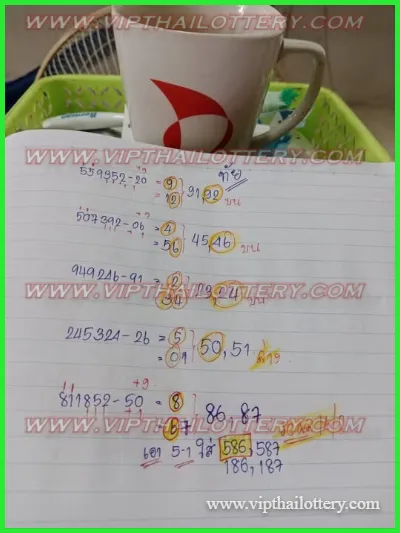 WWW.VIPTHAILOTTERY.COM
WWW.VIPTHAILOTTERY.COM
+9
559952-20 = 9
= 12 91,92 บน
507392-06 = 4
= 56 45,46 บน
WWW.VIPTHAILOTTERY.COM
949246-91 = 2
= 34 23,24 บน
WWW.VIPTHAILOTTERY.COM
245324-26 = 5
= 01 50,51 ล่าง
+9
811852-50 = 8
= 67 86,87
WWW.VIPTHAILOTTERY.COM
เอา 5-1 ใส่ 586,587
186,187
www.vipthailottery.com